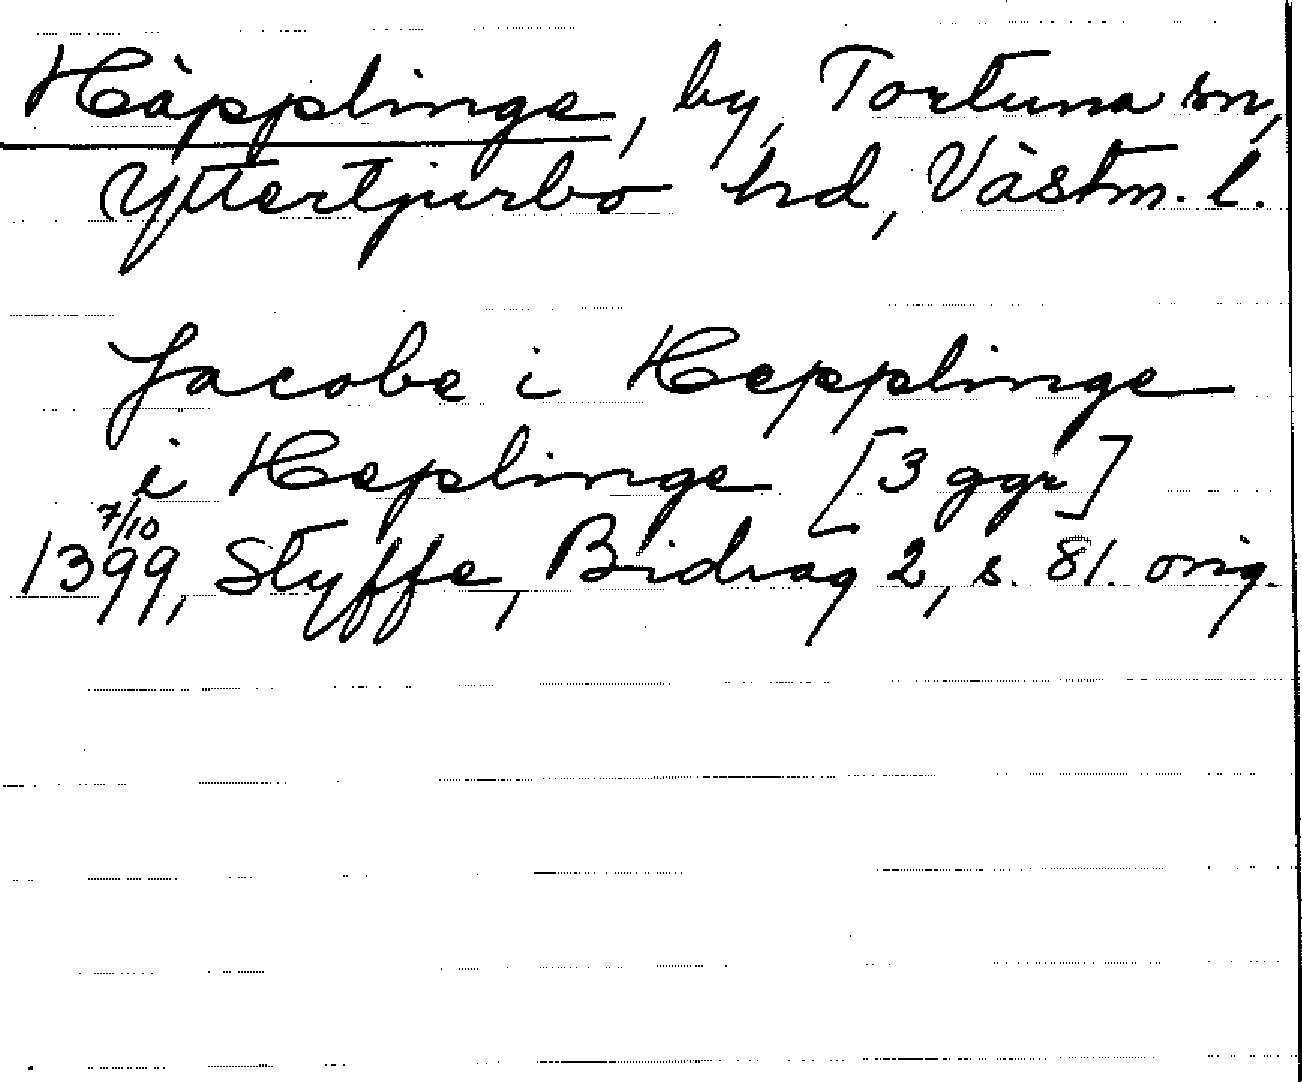 Häpplinge, by, Tortuna sn,
Yttertjurbo hd, Västm. l.
Jacobe i Hepplinge
i Heplinge [3 ggr]
7/10
1399, Styffe, Bidrag 2, s. 81. orig.